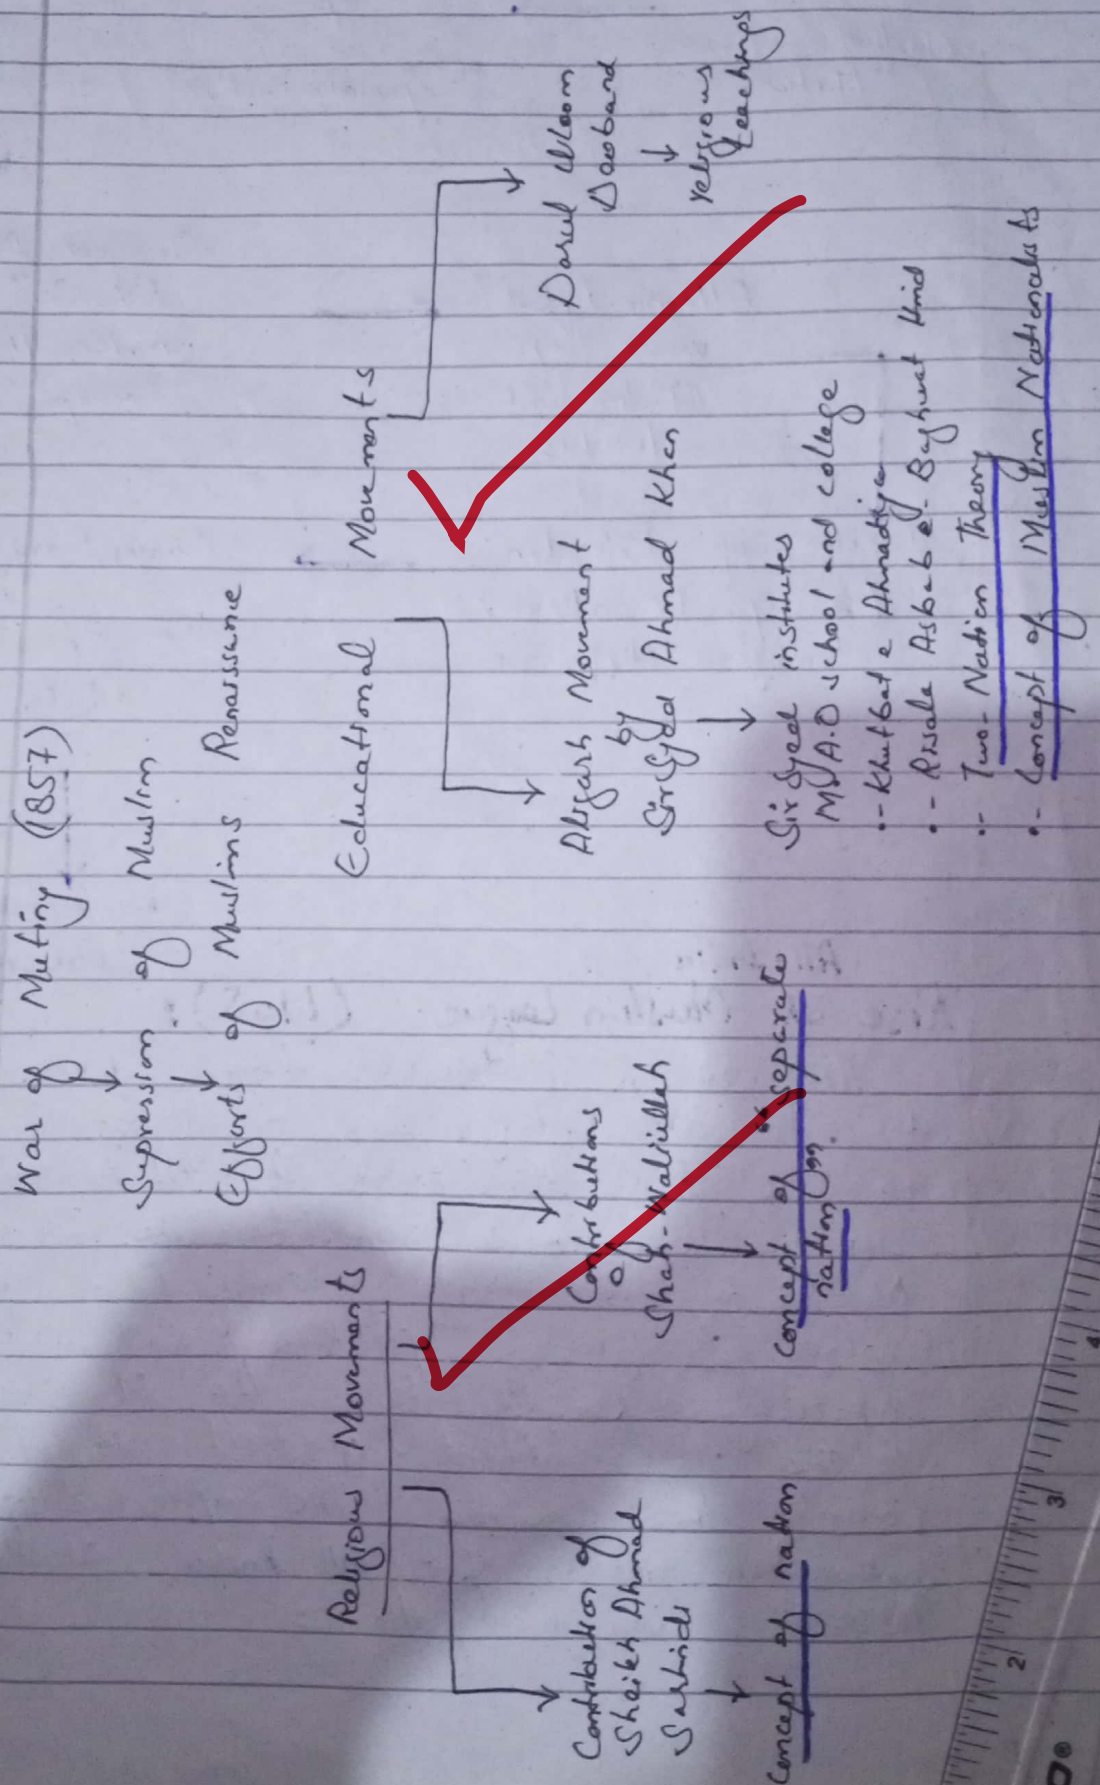 War of Mutiny (1857)
Supression of Muslim
Efforts of Muslims Renaissance
Religious Movements
Contribution of
Sheikh Ahmad
Sarhindi
Concept of nation
Contributions
of
Shah-Waliullah
concept of "separate
nation".
Educational Movements
Aligarh Movement
by
Sir Syed Ahmad Khan
Sir Syed institutes
M.A.O school and college
•- Khutbat e Ahmadiya
•- Risale Asbab e- Baghwat Hind
•- Two-Nation Theory
•- Concept of Muslim Nationalists
Darul Uloom
Deoband
religious
teachings
2
3
4